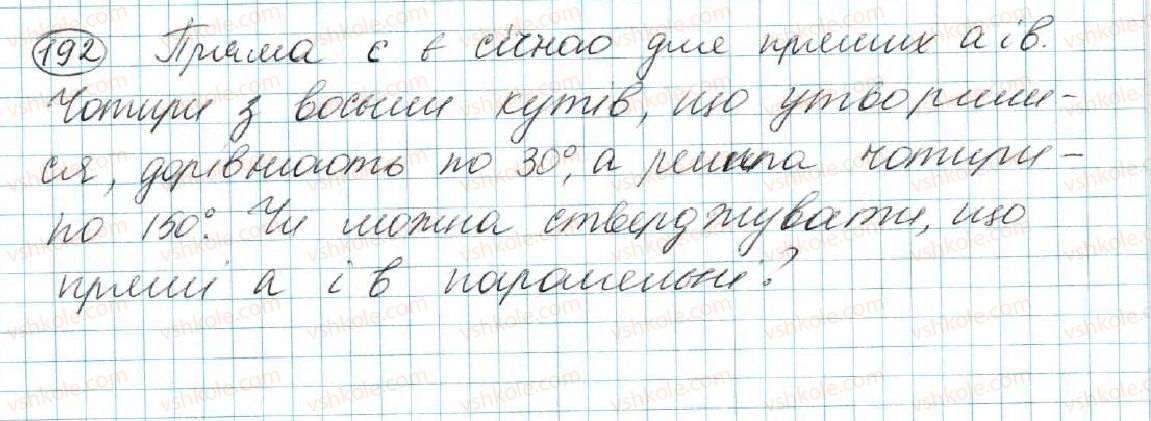 192 Пряма c є січною для прямих a і b.
Чотири з восьми кутів, що утворили-
ся, дорівнюють по 30°, а решта чотири -
по 150°. Чи можна стверджувати, що
прямі a і b паралельні?
vshkole.com